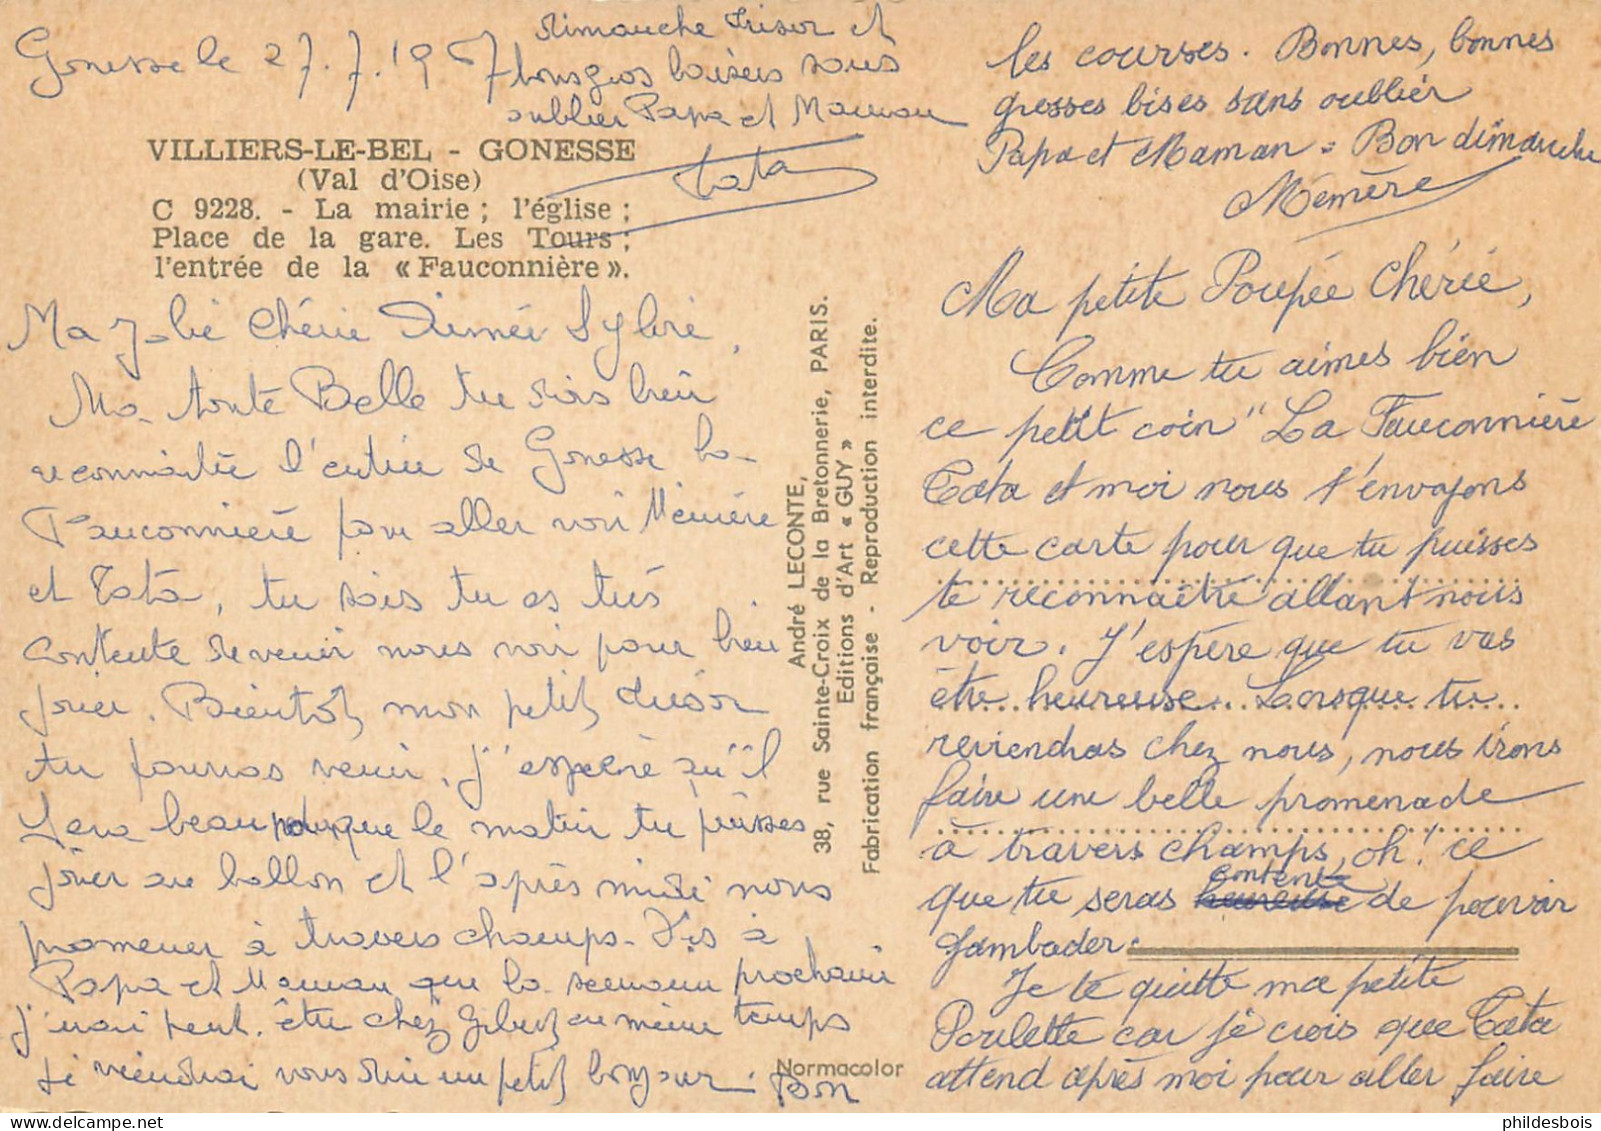 Gonesse le 27.7.1967
VILLIERS-LE-BEL - GONESSE
(Val d'Oise)
C 9228. - La mairie ; l'église ;
Place de la gare. Les Tours ;
l'entrée de la « Fauconnière ».
Ma Jolie Chérie Aimée Sylvie,
Ma toute Belle tu vois bien
reconnaitre l'entrée de Gonesse la
Fauconnière pour aller voir Mémère
et Tata, tu sais tu es très
contente de venir nous voir pour bien
jouer. Bientôt, mon petit trésor
tu pourras venir, j'espère qu'il
sera beau pour que le matin tu puisses
jouer au ballon et l'après midi nous
promener à travers champs. Dis à
Papa et Maman que la semaine prochaine
j'irai peut. être chez Gilbert en même temps
je viendrai vous dire un petit bonjour. Bon
dimanche trésor et
bons gros baisers sans
oublier Papa et Maman
Tata
André LECONTE,
38, rue Sainte-Croix de la Bretonnerie, PARIS.
Editions d'Art « GUY »
Fabrication française - Reproduction interdite.
Normacolor
Ma petite Poupée Chérie,
Comme tu aimes bien
ce petit coin "La Fauconnière
Tata et moi nous t'envoyons
cette carte pour que tu puisses
te reconnaitre allant nous
voir. J'espère que tu vas
être heureuse. Lorsque tu
reviendras chez nous, nous irons
faire une belle promenade
à travers champs, oh! ce
que tu seras contente de pouvoir
gambader.
Je te quitte ma petite
Poulette car je crois que Tata
attend après moi pour aller faire
les courses. Bonnes, bonnes
grosses bises sans oublier
Papa et Maman. Bon dimanche
Mémère
phildesbois